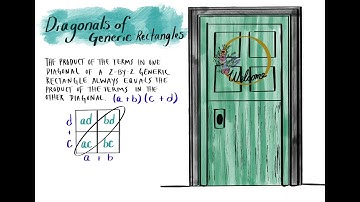 Diagonals of
Generic Rectangles
THE PRODUCT OF THE TERMS IN ONE
DIAGONAL OF A 2-BY-2 GENERIC
RECTANGLE ALWAYS EQUALS THE
PRODUCT OF THE TERMS IN THE
OTHER DIAGONAL. (a+b)(c+d)
d ad bd
+
c ac bc
a + b
Welcome